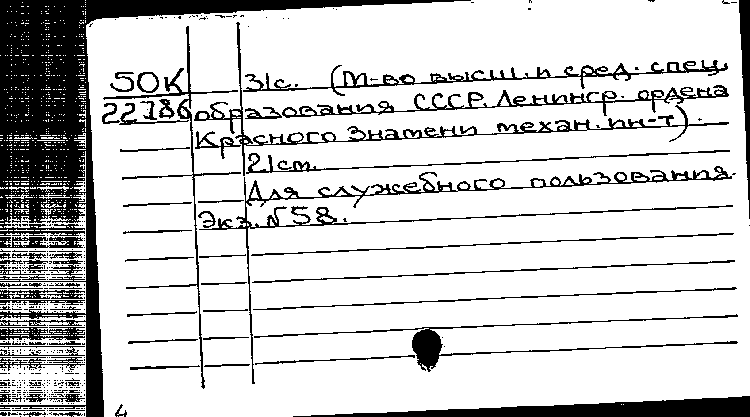 50К 31с. (М-во высш. и сред. спец.
22786 образования СССР. Ленингр. ордена
Красного Знамени механ. ин-т).
21см.
Для служебного пользования.
Экз. №58.
4